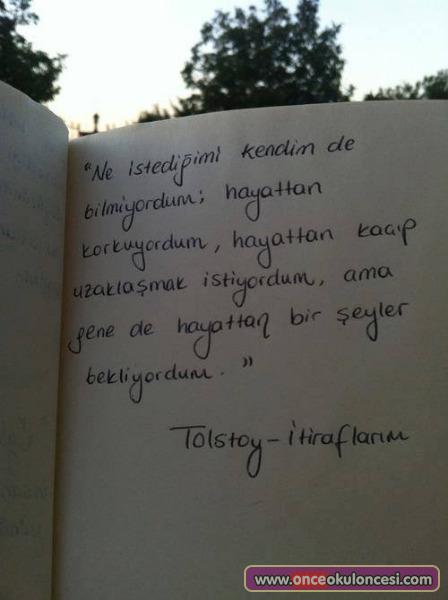 "Ne istediğimi kendim de
bilmiyordum; hayattan
korkuyordum, hayattan kaçıp
uzaklaşmak istiyordum, ama
gene de hayattan bir şeyler
bekliyordum."
Tolstoy - İtiraflarım
www.onceokuloncesi.com